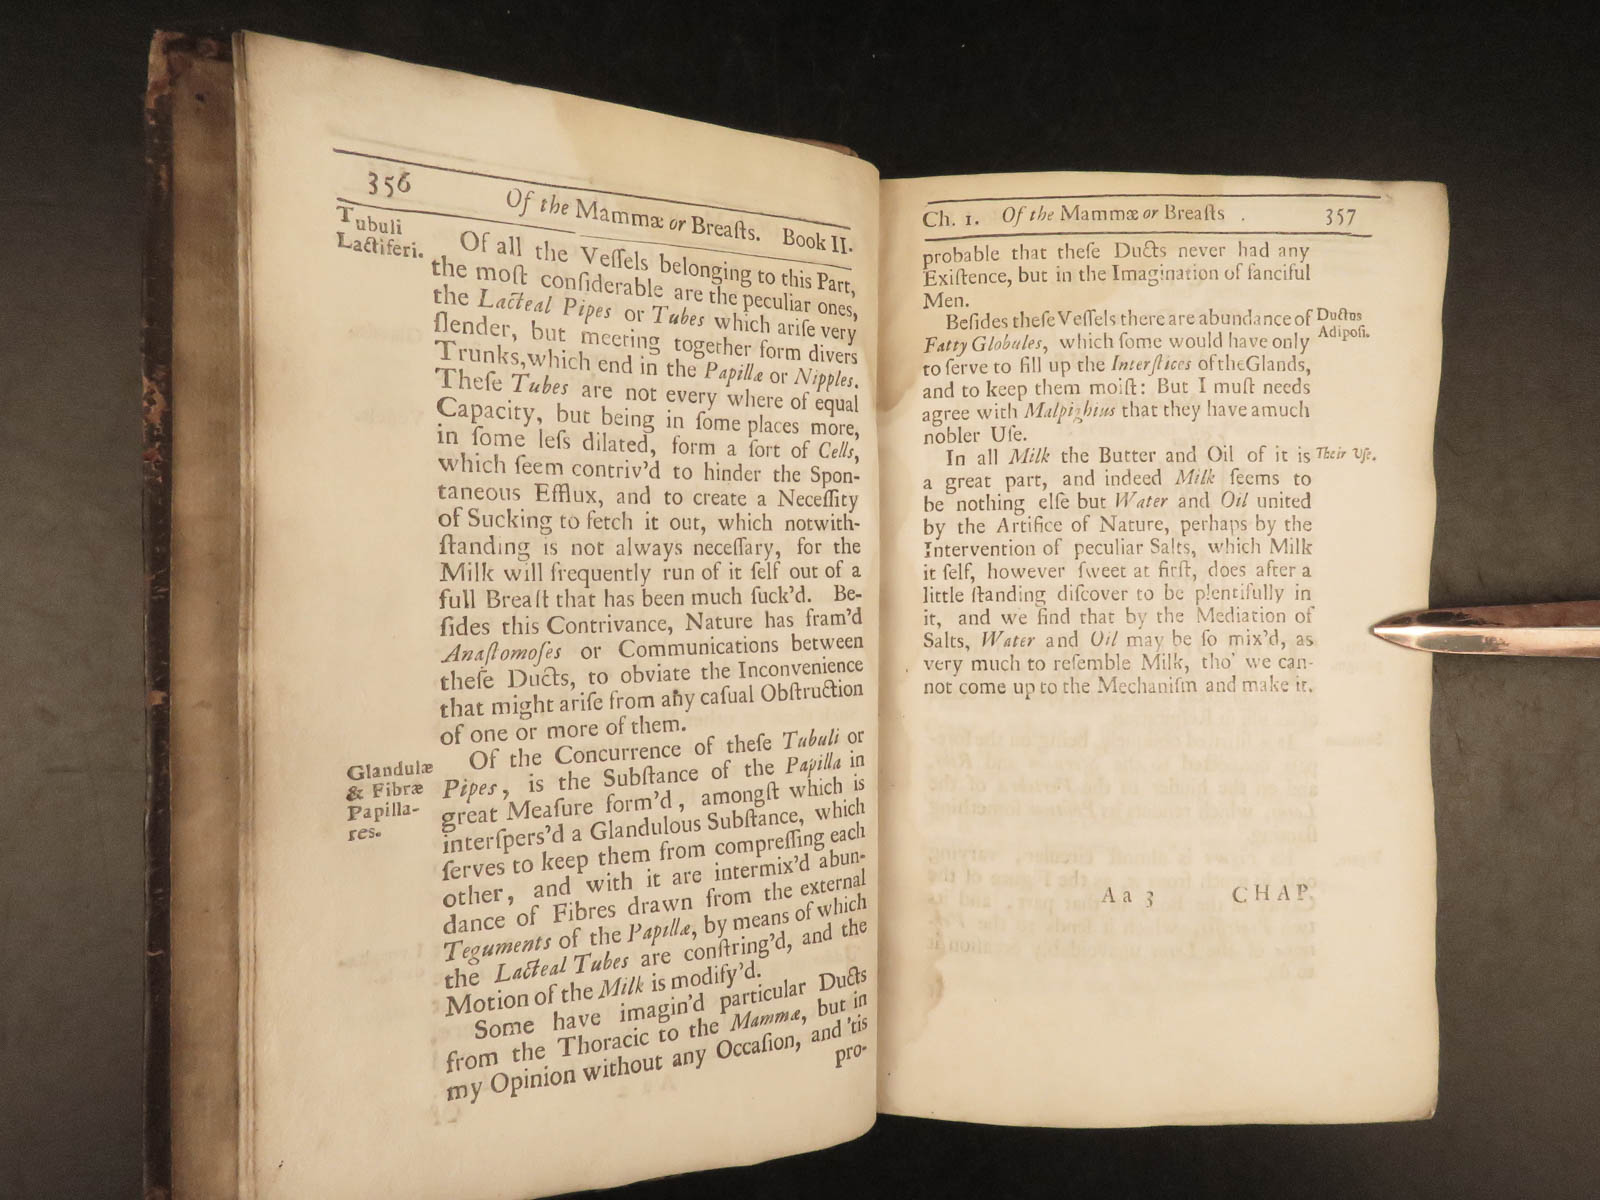 356
Of the Mammæ or Breaſts. Book II.
Tubuli
Lactiferi.
Of all the Veſſels belonging to this Part,
the moſt conſiderable are the peculiar ones,
the Lacteal Pipes or Tubes which ariſe very
ſlender, but meeting together form divers
Trunks, which end in the Papillæ or Nipples.
Theſe Tubes are not every where of equal
Capacity, but being in ſome places more,
in ſome leſs dilated, form a ſort of Cells,
which ſeem contriv'd to hinder the Spon-
taneous Efflux, and to create a Neceſſity
of Sucking to fetch it out, which notwith-
ſtanding is not always neceſſary, for the
Milk will frequently run of it ſelf out of a
full Breaſt that has been much ſuck'd. Be-
ſides this Contrivance, Nature has fram'd
Anaſtomoſes or Communications between
theſe Ducts, to obviate the Inconvenience
that might ariſe from any caſual Obſtruction
of one or more of them.
Glandulæ
& Fibræ
Papilla-
res.
Of the Concurrence of theſe Tubuli or
Pipes, is the Subſtance of the Papilla in
great Meaſure form'd, amongſt which is
interſpers'd a Glandulous Subſtance, which
ſerves to keep them from compreſſing each
other, and with it are intermix'd abun-
dance of Fibres drawn from the external
Teguments of the Papillæ, by means of which
the Lacteal Tubes are conſtring'd, and the
Motion of the Milk is modify'd.
Some have imagin'd particular Ducts
from the Thoracic to the Mammæ, but in
my Opinion without any Occaſion, and 'tis
pro-
Ch. 1. Of the Mammæ or Breaſts . 357
probable that theſe Ducts never had any
Exiſtence, but in the Imagination of fanciful
Men.
Beſides theſe Veſſels there are abundance of
Fatty Globules, which ſome would have only
to ſerve to fill up the Interſtices of the Glands,
and to keep them moiſt: But I muſt needs
agree with Malpighius that they have a much
nobler Uſe.
Ductus
Adipoſi.
In all Milk the Butter and Oil of it is
a great part, and indeed Milk ſeems to
be nothing elſe but Water and Oil united
by the Artifice of Nature, perhaps by the
Intervention of peculiar Salts, which Milk
it ſelf, however ſweet at firſt, does after a
little ſtanding diſcover to be plentifully in
it, and we find that by the Mediation of
Salts, Water and Oil may be ſo mix'd, as
very much to reſemble Milk, tho' we can-
not come up to the Mechaniſm and make it.
Their Uſe.
Aa 3 CHAP.